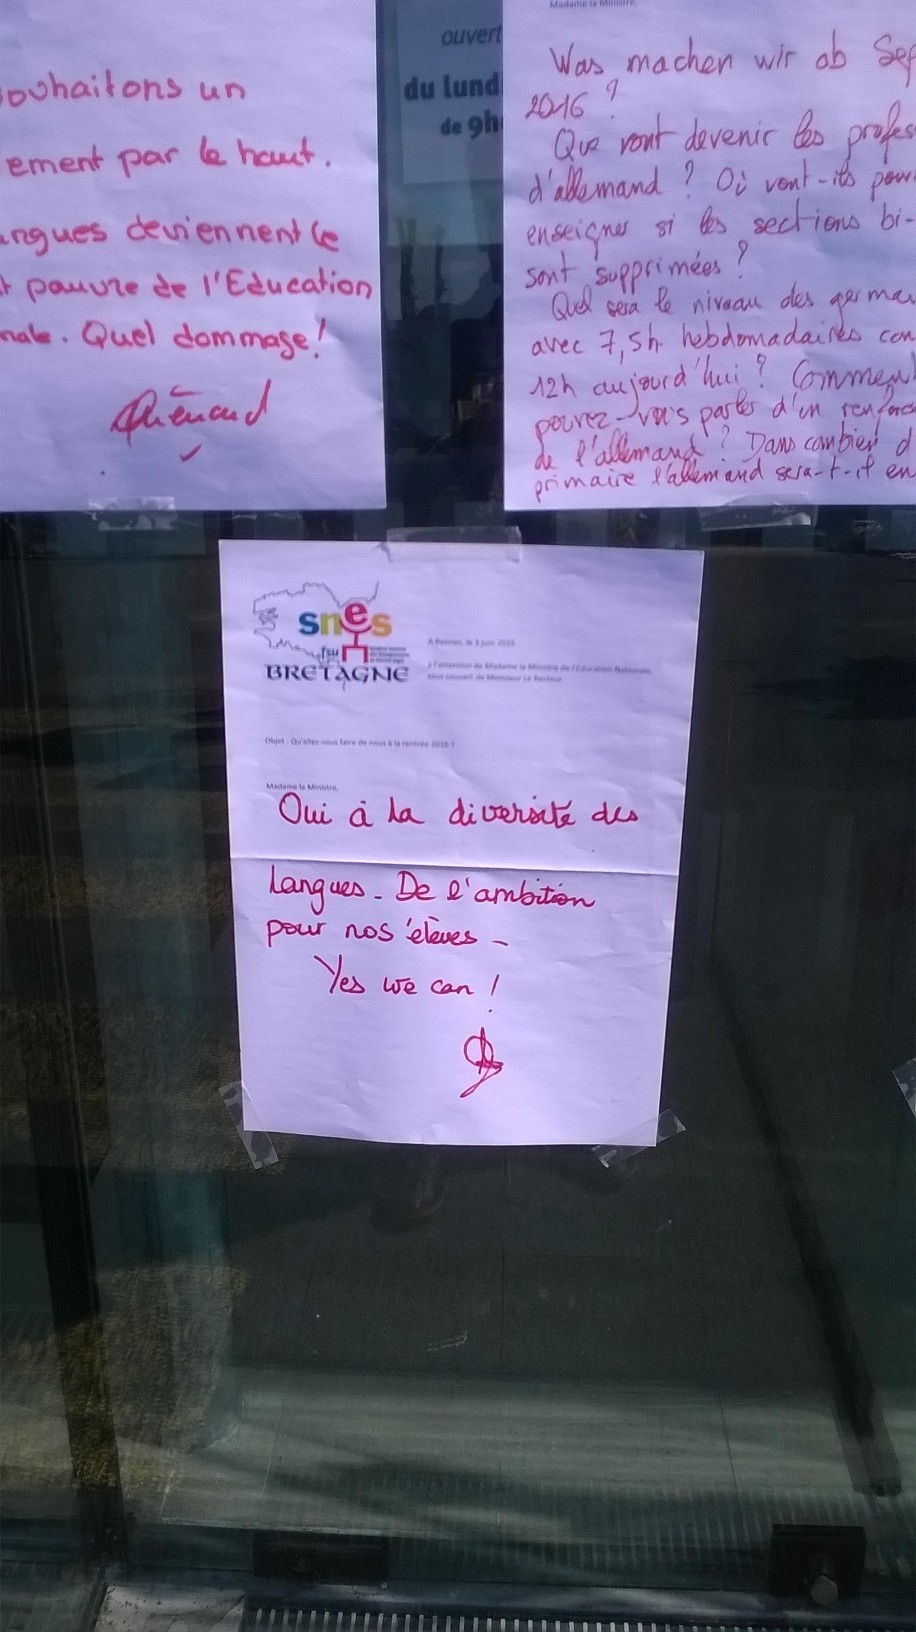 souhaitons un
ement par le haut.
angues deviennent le
pauvre de l'Education
nale. Quel dommage!
ouvert
du lund
de 9h
Madame la Ministre,
Was machen wir ab Sep
2016 ?
Que vont devenir les profes
d'allemand ? Où vont-ils pouv
enseigner si les sections bi-
sont supprimées ?
Quel sera le niveau des german
avec 7,5h hebdomadaires con
12h aujourd'hui ? Comment
pouvez-vous parler d'un renforc
de l'allemand ? Dans combien d
primaire l'allemand sera-t-il en
snes
fsu
BRETAGNE
A Rennes, le 5 juin 2015
à l'attention de Madame la Ministre de l'Éducation Nationale,
sous couvert de Monsieur Le Recteur
Objet : Qu'allez-vous faire de nous à la rentrée 2016 ?
Madame la Ministre,
Oui à la diversité des
langues - De l'ambition
pour nos élèves -
Yes we can !